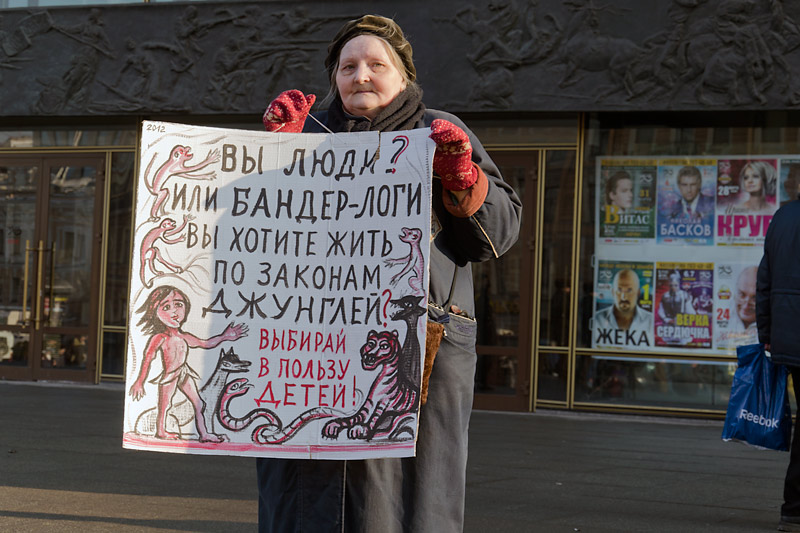 2012
ВЫ ЛЮДИ?
ИЛИ БАНДЕР-ЛОГИ
ВЫ ХОТИТЕ ЖИТЬ
ПО ЗАКОНАМ
ДЖУНГЛЕЙ?
ВЫБИРАЙ
В ПОЛЬЗУ
ДЕТЕЙ!
ВИТАС
БАСКОВ
КРУГ
ЖЕКА
ВЕРКА
СЕРДЮЧКА
24
Reebok